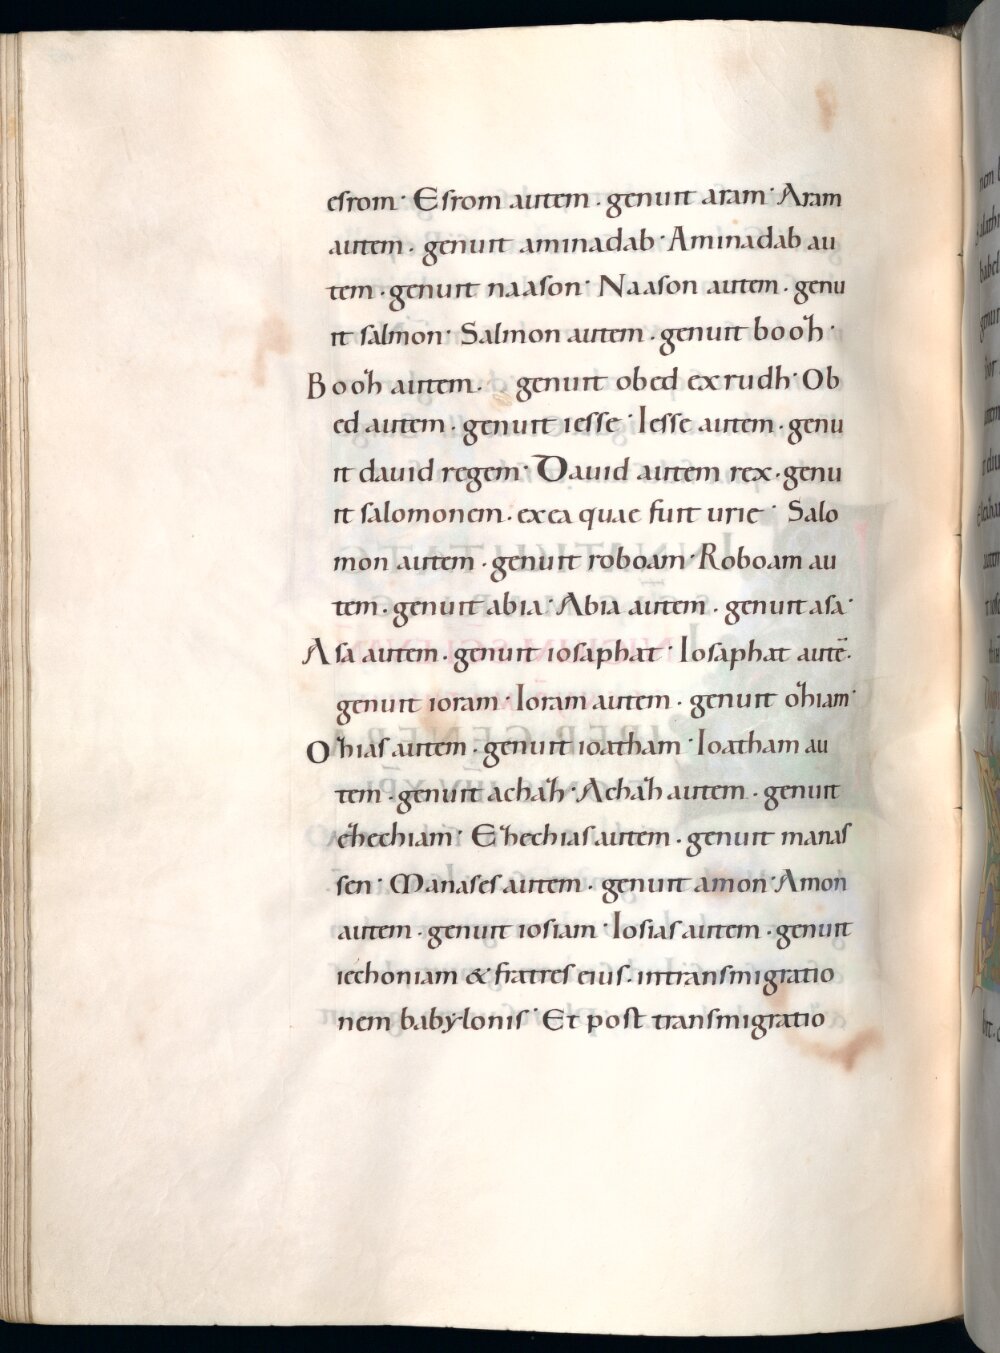 esrom· Esrom autem· genuit aram· Aram
autem· genuit aminadab· Aminadab au
tem· genuit naason· Naason autem· genu
it salmon· Salmon autem· genuit booh·
Booh autem· genuit obed ex rudh· Ob
ed autem· genuit iesse· Iesse autem· genu
it dauid regem· Dauid autem rex· genu
it salomonem· ex ea quae fuit urie· Salo
mon autem· genuit roboam· Roboam au
tem· genuit abia· Abia autem· genuit asa·
Asa autem· genuit iosaphat· Iosaphat autē·
genuit ioram· Ioram autem· genuit ohiam·
Ohias autem· genuit ioatham· Ioatham au
tem· genuit achah· Achah autem· genuit
ehechiam· Ehechias autem· genuit manas
sen· Manases autem· genuit amon· Amon
autem· genuit iosiam· Iosias autem· genuit
iechoniam & fratres eius· in transmigratio
nem babylonis· Et post transmigratio